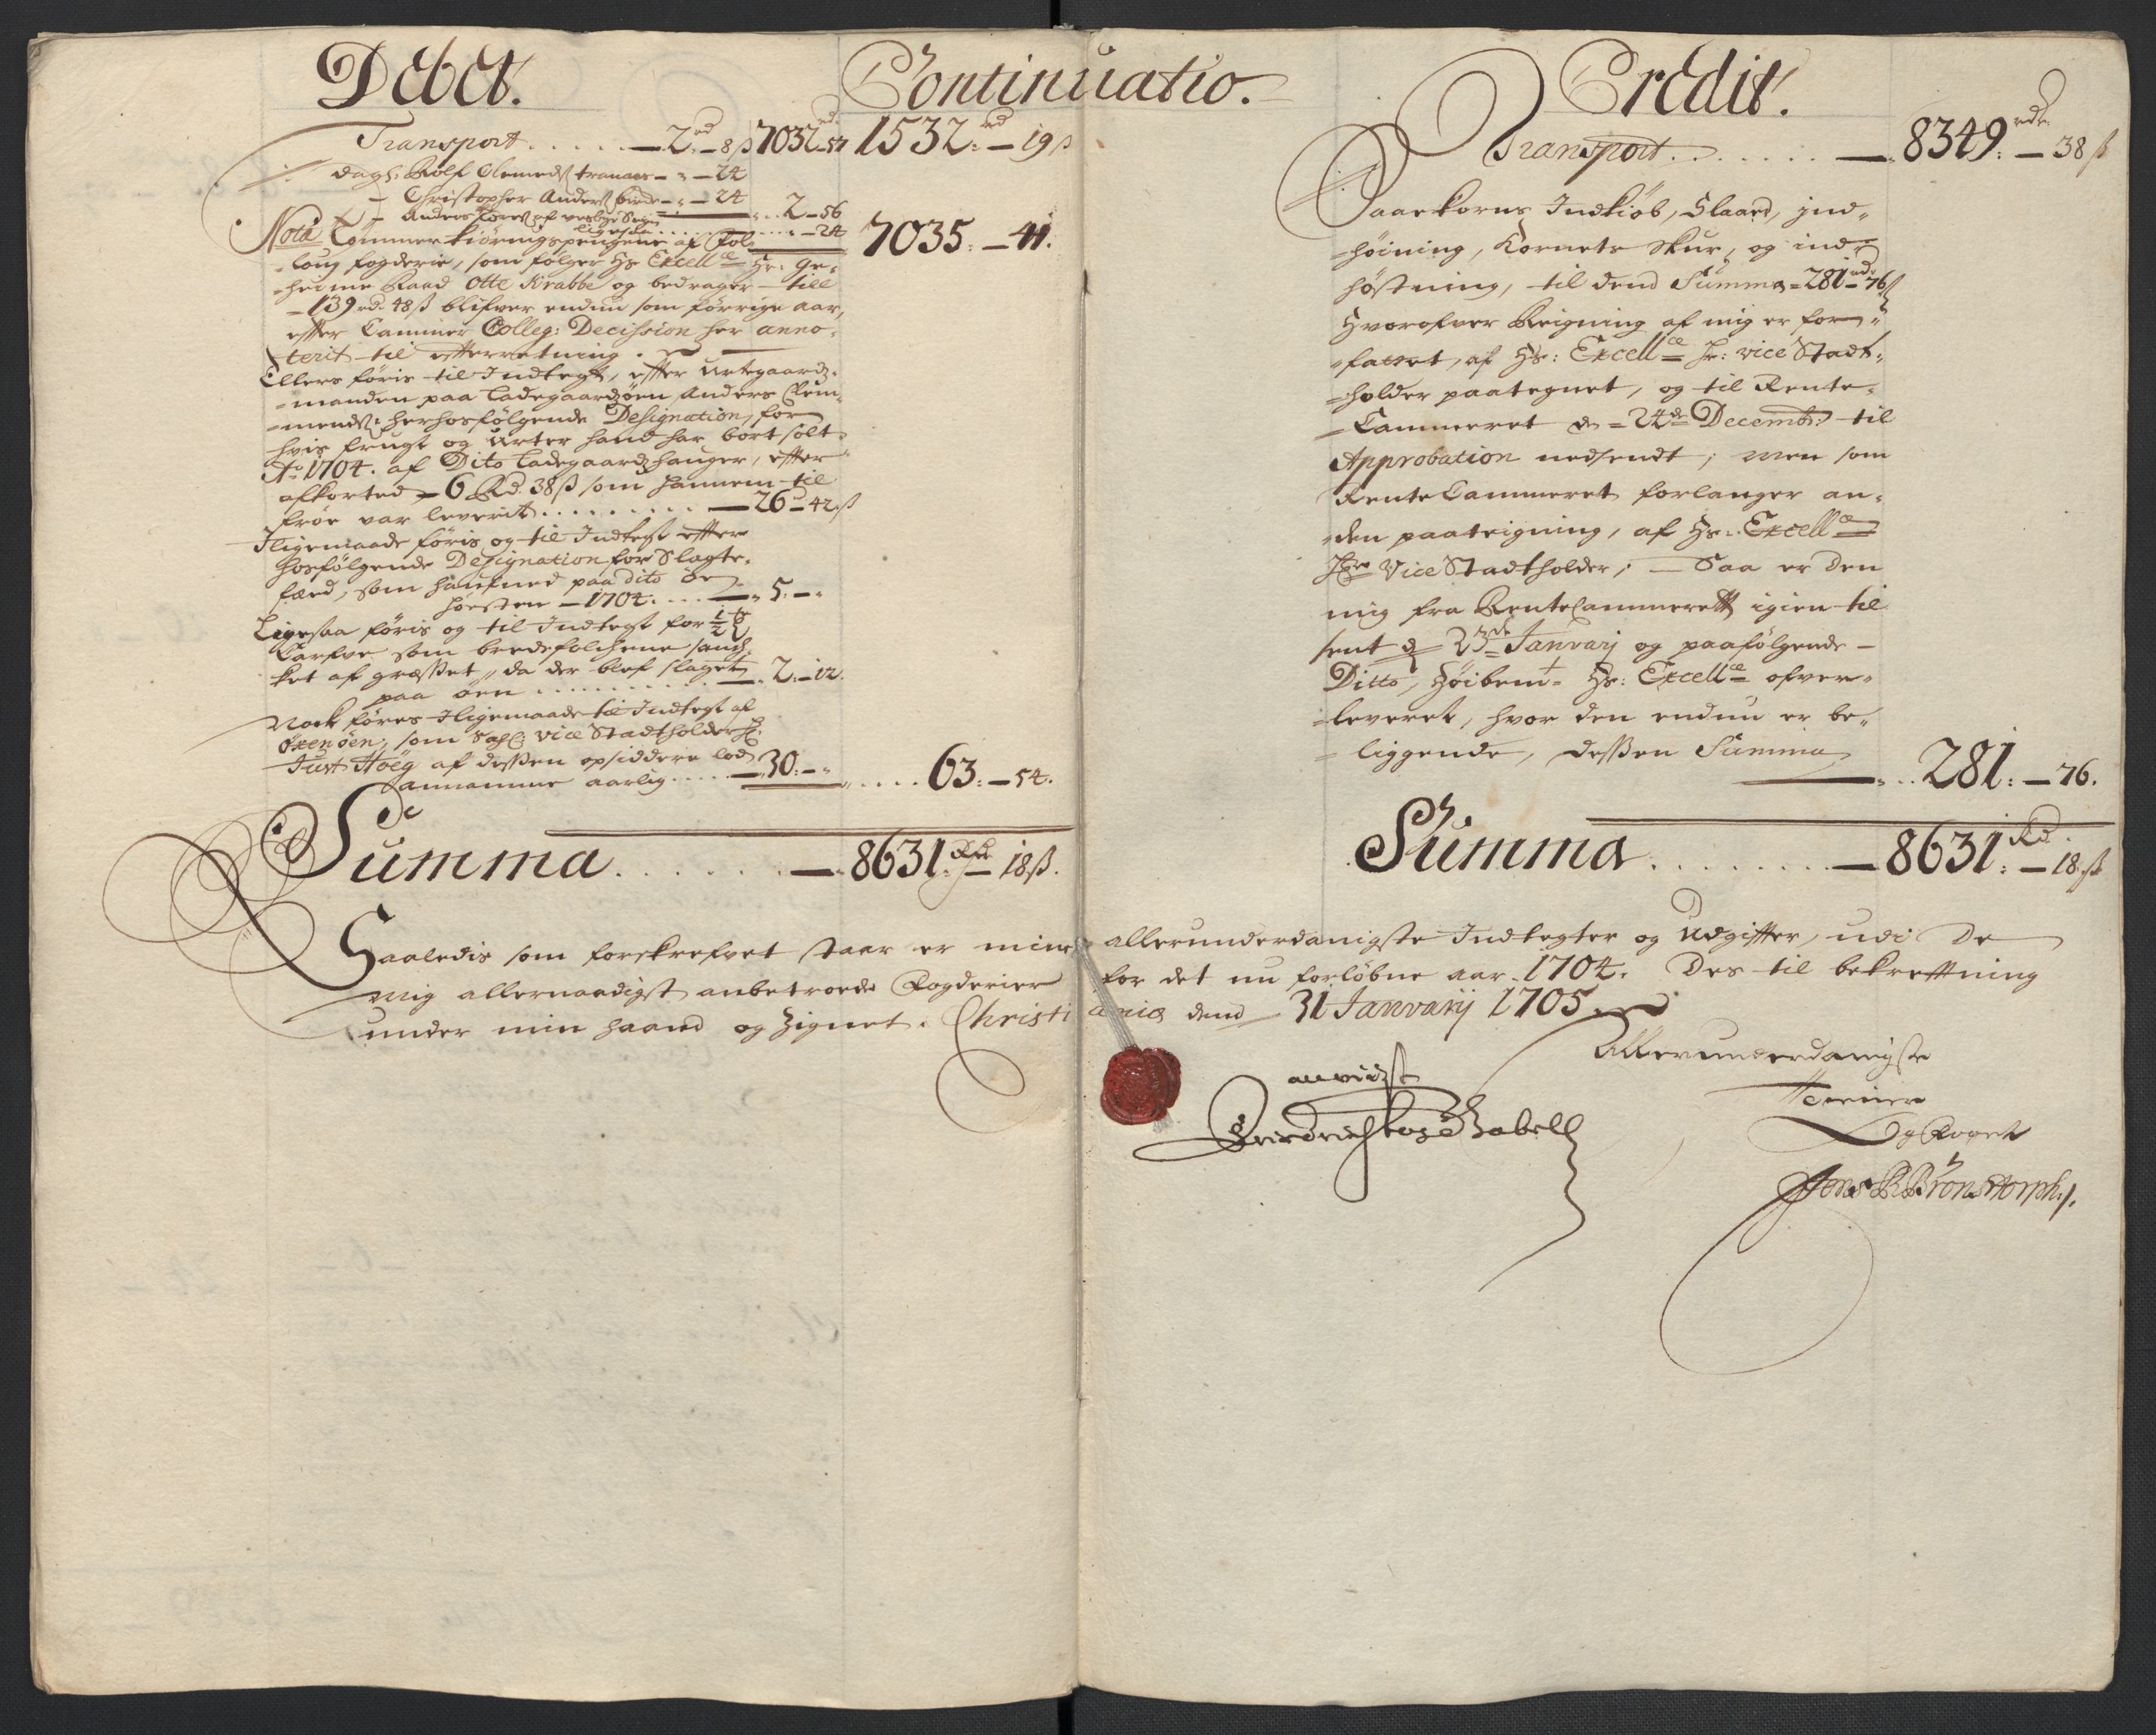 Debet.
Continuatio.
Credit.
Transport ..... — 2 rd — 8 ß 7032 rd — 57 1532 rd — 19 ß
dagl: Rolf Clemeds tranaas — " — 24
— Christopher Anders — " — 24
— Anders — 2 — 56
ligesaa ..... — 24
7035. — 41.
Nota Tømmer kiørings pengene af Fol-
loug fogderie, som følger Hs Excellce Hr. Ge-
heime Raad Otte Krabbe og bedrager — till
— 139 rd. 48 ß blifver endnu som forrige aar,
efter Cammer Colleg: Decission her anno-
terit til efterretning.
Ellers føris til Indtegt, efter Urtegaards-
manden paa Ladegaardsøen Anders Clem-
mends: herhosfølgende Designation, for
hvis frugt og Urter hand har bort solt
Ao 1704. af Dito Ladegaards hauger, efter
afkorted — 6 Rd. 38 ß som hannem til
frøe var leverit ......... — 26 — 42 ß
Iligemaade føris og til Indtegt efter
hosfølgende Designation for Slagte-
fæed, som haufned paa dito øe
høesten — 1704. .... — " 5. — "
Ligesaa føris og til Indtegt for ½
Tarfve som bredefolchene sanch-
ket af græsset, da der blef slaget
paa øen ........... — . 2. — 12.
Nock føres Iligemaade til Indtegt af
Øxenøen, som Sahl: Vice Stadtholder H:
Just Høeg af dessen opsiddere lod
annamme aarlig ..... — 30. — " ..... 63. — 54.
Summa ....... — 8631 Rd — 18 ß.
Transport ...... — 8349. rdr. — 38 ß
Saarkorns Indkiøb, Slaaed, ind-
høining, Kornets skur, og ind-
høstning, til dend Summa = 281 rd — 76 ß
Hvorofver Reigning af mig er for-
fattet, af Hs: Excellce Hr: Vice Stadt-
holder paategnet, og til Rente-
Cammeret d = 24de Decembr: til
Approbation nedsendt; men som
Rente Cammeret forlanger an-
den paateigning, af Hs: Excellce
Hr Vice Stadtholder; — Saa er den
mig fra Rente Cammerett igien til
sent d 23de Janvarj og paafølgende —
Ditto, Høibemt Hs: Excellce ofver-
leveret, hvor den endnu er be-
liggende, dessen Summa
— .. 281. — 76.
Summa ........ — 8631. Rd. — 18. ß
Saaledis som forskrefvet staar er mine allerunderdanigste Indtegter og Udgifter, udi De
mig allernaadigst anbetroede Fogderier for det nu forløbne aar 1704. Des til bekreftning
under min haand og Zignet. Christiania dend 31 Janvarij 1705.
Allerunderdanigste
Tienner
og Foget
Jens R Brønstorph.
anviist